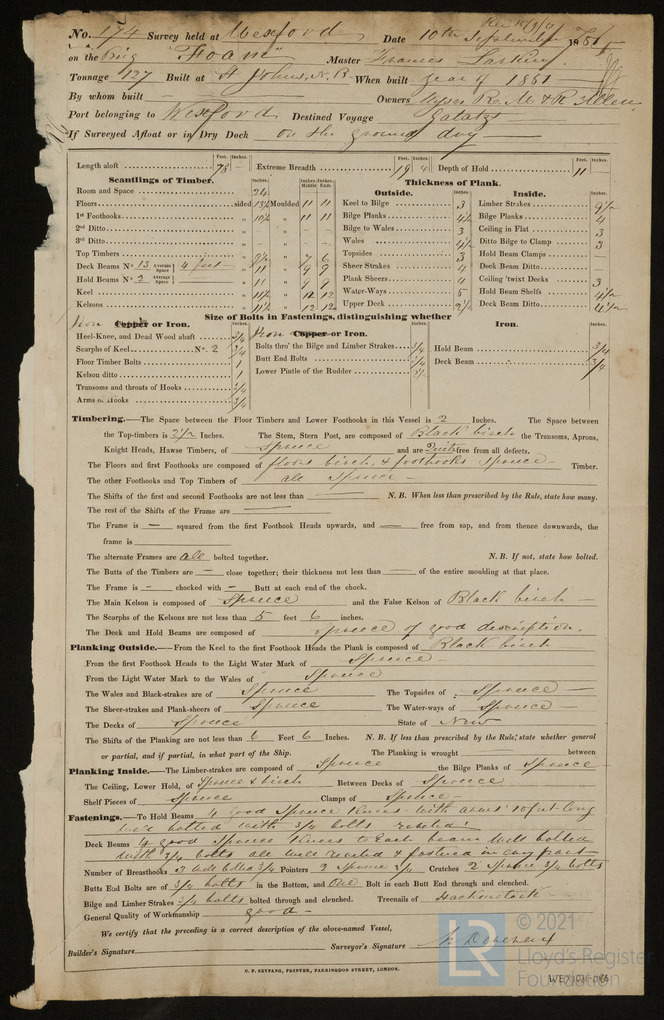 No. 174 Survey held at Wexford Date 10th September 1851
on the Brig "Foam" Master Frances Larkin
Tonnage 127 Built at St Johns, N.B. When built year of 1851
By whom built Owners Messrs R. M & R Allen
Port belonging to Wexford Destined Voyage Galatz
If Surveyed Afloat or in Dry Dock on the ground dry
Length aloft 78 Extreme Breadth 19 4 Depth of Hold 11
Feet. Inches. Feet. Inches. Feet. Inches.
Scantlings of Timber.
Inches. Inches Middle Inches Ends
Room and Space 24
Floors sided 13½ Moulded 11 11
1st Foothooks 10½ 11 11
2nd Ditto
3rd Ditto
Top Timbers 7 6
Deck Beams No 13 Average Space 4 feet 11 9 9
Hold Beams No 2 Average Space 11 9 9
Keel 11½ 12 12
Kelsons 11½ 12 12
Thickness of Plank.
Outside.
Inches.
Keel to Bilge 3
Bilge Planks 4½
Bilge to Wales 3
Wales 4½
Topsides 3
Sheer Strakes 4
Plank Sheers 4
Water-Ways 5
Upper Deck 2½
Inside.
Inches.
Limber Strakes
Bilge Planks 4
Ceiling in Flat 3
Ditto Bilge to Clamp 3
Hold Beam Clamps
Deck Beam Ditto
Ceiling 'twixt Decks 3
Hold Beam Shelfs 4½
Deck Beam Ditto 4½
Size of Bolts in Fastenings, distinguishing whether
Iron Copper or Iron.
Inches.
Heel-Knee, and Dead Wood abaft ¾
Scarphs of Keel No. 2 ¾
Floor Timber Bolts 1
Kelson ditto 1
Transoms and throats of Hooks ¾
Arms of Hooks ¾
Iron Copper or Iron.
Inches.
Bolts thro' the Bilge and Limber Strakes ¾
Butt End Bolts ¾
Lower Pintle of the Rudder
Iron.
Inches.
Hold Beam ¾
Deck Beam ¾
Timbering.—The Space between the Floor Timbers and Lower Foothooks in this Vessel is 2 Inches. The Space between
the Top-timbers is 2½ Inches. The Stem, Stern Post, are composed of Black birch the Transoms, Aprons,
Knight Heads, Hawse Timbers, of Spruce and are Quite free from all defects.
The Floors and first Foothooks are composed of floors birch, & foothooks Spruce Timber.
The other Foothooks and Top Timbers of all Spruce
The Shifts of the first and second Foothooks are not less than N.B. When less than prescribed by the Rule, state how many.
The rest of the Shifts of the Frame are
The Frame is — squared from the first Foothook Heads upwards, and — free from sap, and from thence downwards, the
frame is
The alternate Frames are all bolted together. N.B. If not, state how bolted.
The Butts of the Timbers are — close together; their thickness not less than — of the entire moulding at that place.
The Frame is — chocked with — Butt at each end of the chock.
The Main Kelson is composed of Spruce and the False Kelson of Black birch
The Scarphs of the Kelsons are not less than 5 feet 6 inches.
The Deck and Hold Beams are composed of Spruce of good description.
Planking Outside.—From the Keel to the first Foothook Heads the Plank is composed of Black birch
From the first Foothook Heads to the Light Water Mark of Spruce
From the Light Water Mark to the Wales of Spruce
The Wales and Black-strakes are of Spruce The Topsides of Spruce
The Sheer-strakes and Plank-sheers of Spruce The Water-ways of Spruce
The Decks of Spruce State of New
The Shifts of the Planking are not less than 6 Feet 6 Inches. N.B. If less than prescribed by the Rule, state whether general
or partial, and if partial, in what part of the Ship. The Planking is wrought between
Planking Inside.—The Limber-strakes are composed of Spruce the Bilge Planks of Spruce
The Ceiling, Lower Hold, of Spruce & birch Between Decks of Spruce
Shelf Pieces of Spruce Clamps of Spruce
Fastenings.—To Hold Beams 4 good Spruce Knees with arms 10 feet long
well bolted with ¾ bolts
Deck Beams 4 good Spruce Knees to Each beam well bolted
with ¾ bolts all well riveted & fastened in every part
Number of Breasthooks 2 well bolted ¾ Pointers 2 Spruce ¾ Crutches 2 Spruce ¾ bolts
Butts End Bolts are of ¾ bolts in the Bottom, and One Bolt in each Butt End through and clenched.
Bilge and Limber Strakes ¾ bolts bolted through and clenched. Treenails of Hackmatack
General Quality of Workmanship good
We certify that the preceding is a correct description of the above-named Vessel,
Builder's Signature Surveyor's Signature
C. F. SEYFANG, PRINTER, FARRINGDON STREET, LONDON.
LR © 2021
Lloyd's Register
Foundation